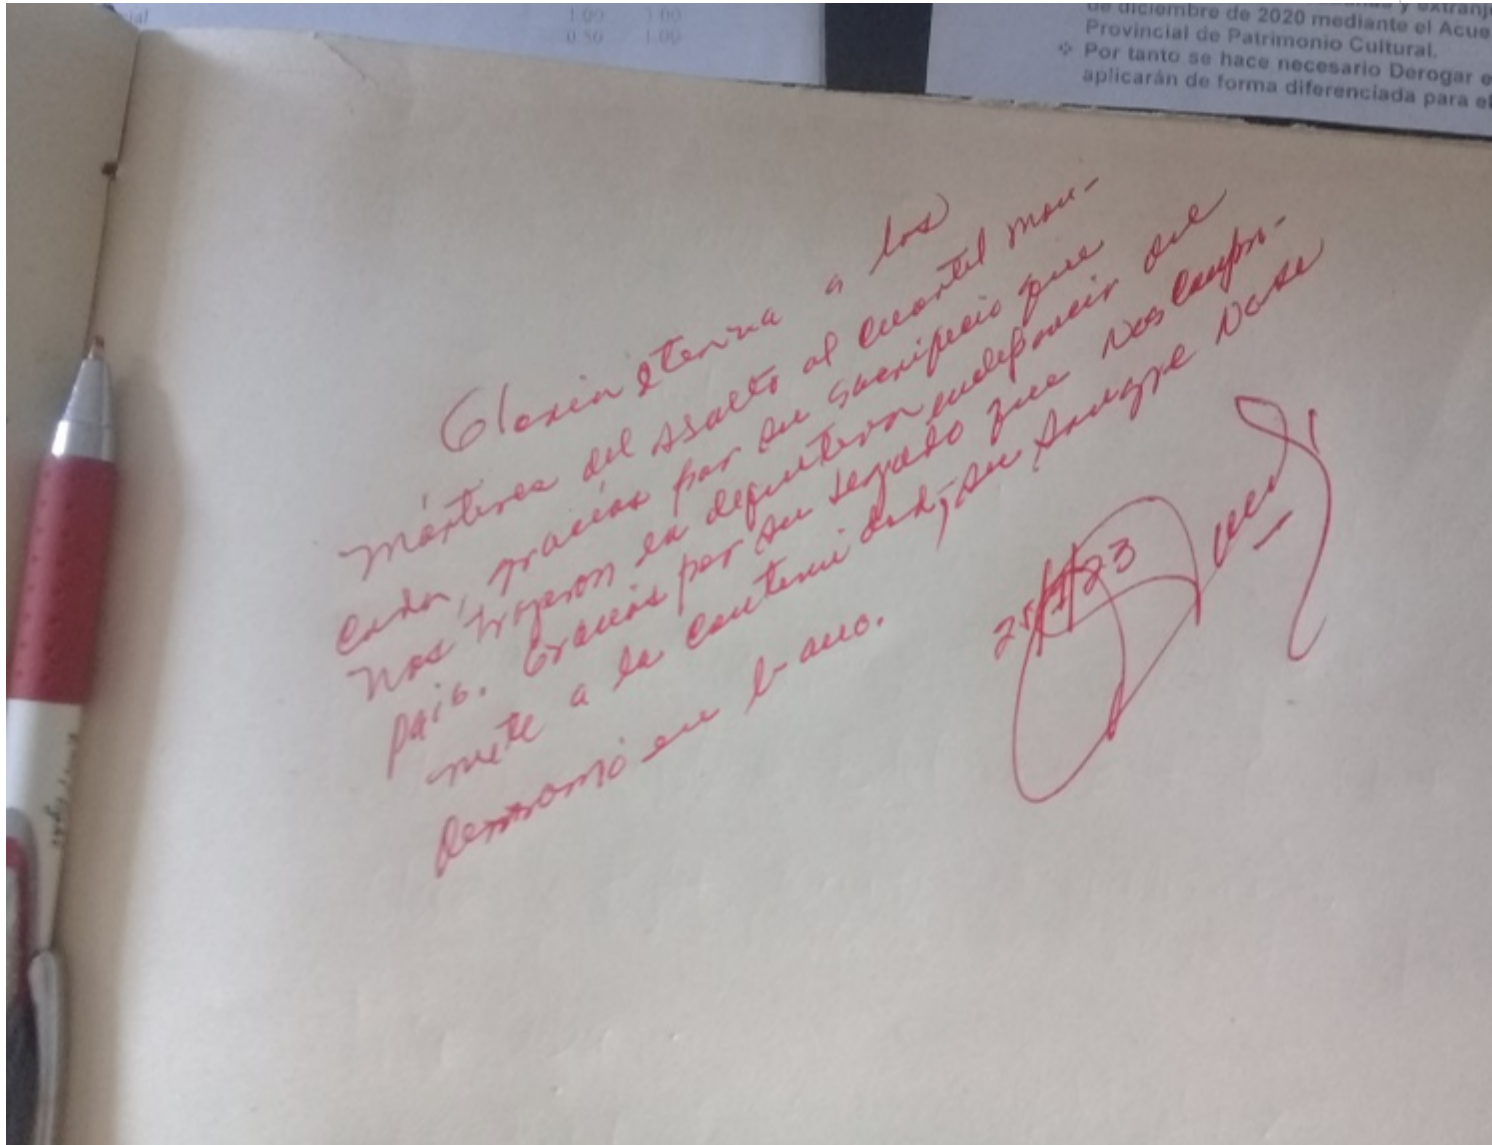 ial
1.00 3.00
0.50 1.00
y extranj
de diciembre de 2020 mediante el Acue
Provincial de Patrimonio Cultural.
❖ Por tanto se hace necesario Derogar e
aplicarán de forma diferenciada para el
Gloria eterna a los
mártires del asalto al cuartel Mon-
cada, gracias por su sacrificio que
nos trajeron la definitiva independencia del
país. Gracias por su legado que nos compro-
mete a la continuidad, su sangre no se
derramó en bano.
25/1/23